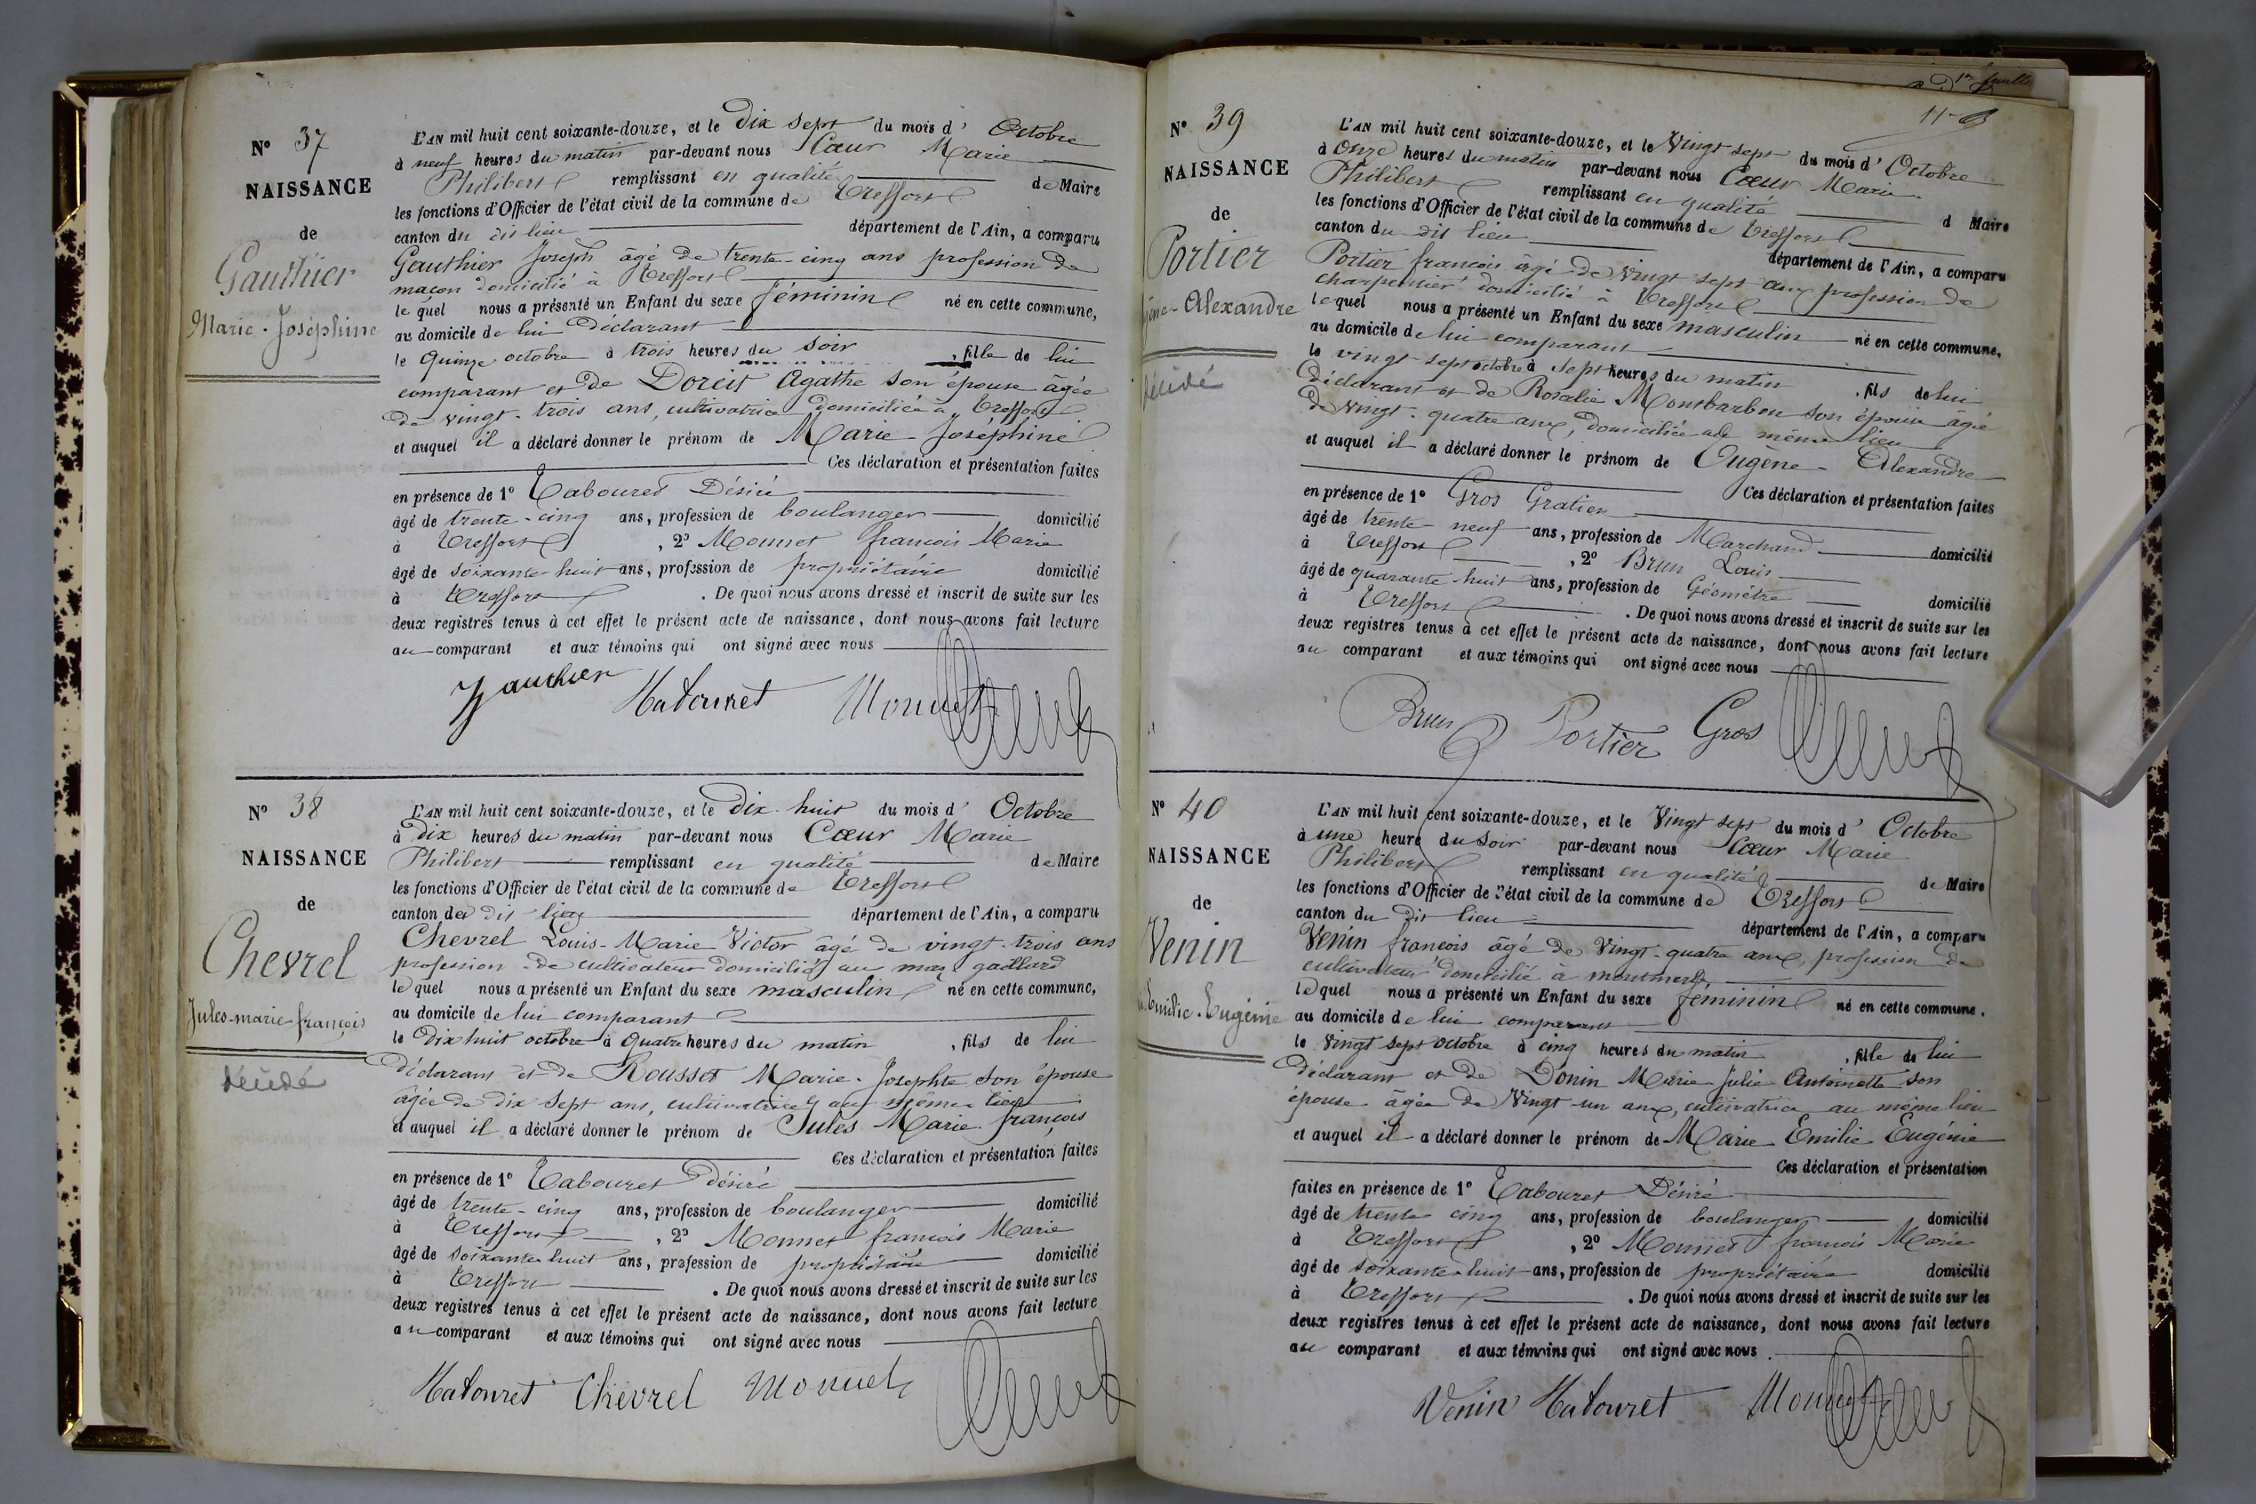 N° 37
NAISSANCE
de
Gauthier
Marie-Joséphine
L'AN mil huit cent soixante-douze, et le Dix sept du mois d' Octobre
à neuf heures du matin par-devant nous Cœur Marie
Philibert remplissant en qualité de Maire
les fonctions d'Officier de l'état civil de la commune de Treffort
canton du dit lieu département de l'Ain, a comparu
Gauthier Joseph âgé de trente-cinq ans profession de
maçon domicilié à Treffort
le quel nous a présenté un Enfant du sexe féminin né en cette commune,
au domicile de lui Déclarant
le quinze octobre à trois heures du soir , fille de lui
comparant et de Doreit Agathe son épouse âgée
de vingt-trois ans, cultivatrice domiciliée à Treffort
et auquel il a déclaré donner le prénom de Marie-Joséphine
Ces déclaration et présentation faites
en présence de 1° Tabouret Désiré
âgé de trente-cinq ans, profession de boulanger domicilié
à Treffort , 2° Monnet françois Marie
âgé de soixante huit ans, profession de propriétaire domicilié
à Treffort . De quoi nous avons dressé et inscrit de suite sur les
deux registres tenus à cet effet le présent acte de naissance, dont nous avons fait lecture
au comparant et aux témoins qui ont signé avec nous
Gauthier Tabouret Monnet
N° 38
NAISSANCE
de
Chevrel
Jules-marie françois
Décédé
L'AN mil huit cent soixante-douze, et le Dix-huit du mois d' Octobre
à Dix heures du matin par-devant nous Cœur Marie
Philibert remplissant en qualité de Maire
les fonctions d'Officier de l'état civil de la commune de Treffort
canton du dit lieu département de l'Ain, a comparu
Chevrel Louis-Marie Victor âgé de vingt-trois ans
profession de cultivateur domicilié au mas gaillard
le quel nous a présenté un Enfant du sexe masculin né en cette commune,
au domicile de lui comparant
le Dix huit octobre à quatre heures du matin , fils de lui
déclarant et de Rousset Marie-Josephte son épouse
âgée de dix sept ans, cultivatrice au même lieu
et auquel il a déclaré donner le prénom de Jules Marie françois
Ces déclaration et présentation faites
en présence de 1° Tabouret désiré
âgé de trente-cinq ans, profession de boulanger domicilié
à Treffort , 2° Monnet françois Marie
âgé de soixante huit ans, profession de propriétaire domicilié
à Treffort . De quoi nous avons dressé et inscrit de suite sur les
deux registres tenus à cet effet le présent acte de naissance, dont nous avons fait lecture
au comparant et aux témoins qui ont signé avec nous
Tabouret Chevrel Monnet
N° 39
NAISSANCE
de
Portier
Alexandre
Décédé
L'AN mil huit cent soixante-douze, et le Vingt sept du mois d' Octobre
à Onze heures du matin par-devant nous Cœur Marie
Philibert remplissant en qualité d Maire
les fonctions d'Officier de l'état civil de la commune de Treffort
canton du dit lieu département de l'Ain, a comparu
Portier françois âgé de vingt sept ans profession de
charpentier domicilié à Treffort
le quel nous a présenté un Enfant du sexe masculin né en cette commune,
au domicile de lui comparant
le vingt-sept octobre à sept heures du matin , fils de lui
Déclarant et de Rosalie Montbarbon son épouse âgée
de vingt-quatre ans, domiciliée au même lieu
et auquel il a déclaré donner le prénom de Eugène-Alexandre
Ces déclaration et présentation faites
en présence de 1° Gros Gratien
âgé de trente neuf ans, profession de Marchand domicilié
à Treffort , 2° Brun Louis
âgé de quarante-huit ans, profession de Géomètre domicilié
à Treffort . De quoi nous avons dressé et inscrit de suite sur les
deux registres tenus à cet effet le présent acte de naissance, dont nous avons fait lecture
au comparant et aux témoins qui ont signé avec nous
Brun Portier Gros
N° 40
NAISSANCE
de
Venin
Emilie-Eugénie
L'AN mil huit cent soixante-douze, et le Vingt sept du mois d' Octobre
à une heure du soir par-devant nous Cœur Marie
Philibert remplissant en qualité de Maire
les fonctions d'Officier de l'état civil de la commune de Treffort
canton du dit lieu département de l'Ain, a comparu
Venin françois âgé de Vingt-quatre ans, profession de
cultivateur domicilié à
le quel nous a présenté un Enfant du sexe féminin né en cette commune,
au domicile de lui comparant
le Vingt sept octobre à cinq heures du matin , fille de lui
déclarant et de Donin Marie Julie Antoinette son
épouse âgée de Vingt-un ans, cultivatrice au même lieu
et auquel il a déclaré donner le prénom de Marie Emilie Eugénie
Ces déclaration et présentation
faites en présence de 1° Tabouret Désiré
âgé de trente cinq ans, profession de boulanger domicilié
à Treffort , 2° Monnet françois Marie
âgé de soixante-huit ans, profession de propriétaire domicilié
à Treffort . De quoi nous avons dressé et inscrit de suite sur les
deux registres tenus à cet effet le présent acte de naissance, dont nous avons fait lecture
au comparant et aux témoins qui ont signé avec nous
Venin Tabouret Monnet